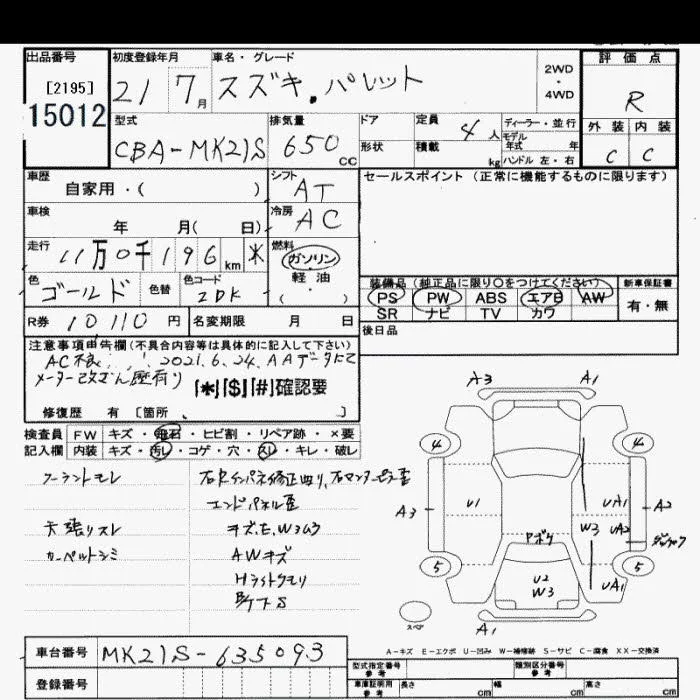 出品番号
[2195]
15012
初度登録年月
21 7月
車名・グレード
スズキ. パレット
2WD
・
4WD
評価点
R
外装 内装
C C
型式
CBA-MK21S
排気量
650 CC
ドア
形状
定員
4人
積載
kg
ディーラー・並行
モデル
年式 年
ハンドル 左・右
車歴
自家用・( )
シフト
AT
車検
年 月( 日)
冷房
AC
走行
11万0千196km *
燃料
ガソリン
軽・油
( )
色
ゴールド
色替
色コード
ZDK
R券 10110円
名変期限 月 日
セールスポイント (正常に機能するものに限ります)
装備品 (純正品に限り○をつけてください)
PS PW ABS エアB AW
SR ナビ TV カワ
新車保証書
有・無
後日品
注意事項申告欄(不具合内容等は具体的に記入して下さい)
AC不良 2021.6.24.AAデータにて
メーター改ざん歴有り
「*」「$」「#」確認要
修復歴 有 [箇所 ]
検査員
記入欄
FW キズ・飛石・ヒビ割・リペア跡・×要
内装 キズ・汚レ・コゲ・穴・スレ・キレ・破レ
天張リスレ
カーペットシミ
エンドパネル歪
AWキズ
Hライトクモリ
A3 A1
4 4
A3 U1 UA1 A2
W3 UA2
Pボケ
5 5
U2
W3
UA1
スペア
A1
A-キズ E-エクボ U-凹み W-補修跡 S-サビ C-腐食 XX-交換済
車台番号 MK21S-635093
登録番号
型式指定番号
参考
類別区分番号
参考
車庫証明用
参考
長さ cm 幅 cm 高さ cm